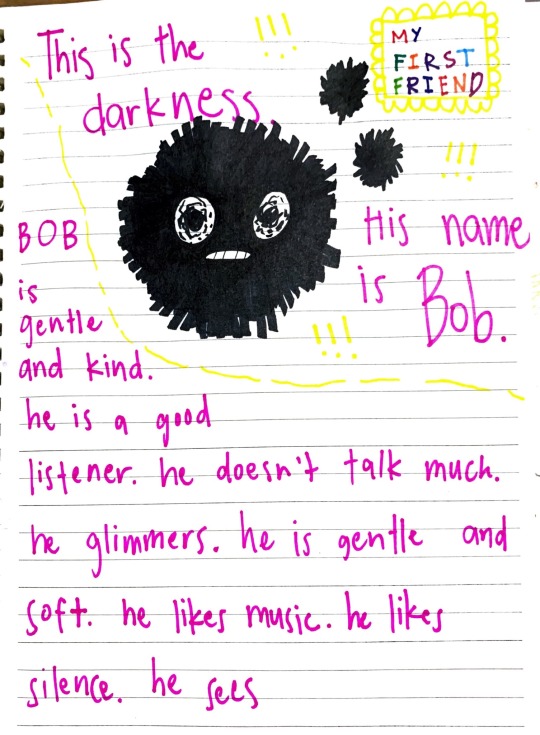 This is the
darkness.
MY
FIRST
FRIEND
!!!
!!!
His name
is Bob.
!!!
BOB
is
gentle
and kind.
he is a good
listener. he doesn't talk much.
he glimmers. he is gentle and
soft. he likes music. he likes
silence. he sees